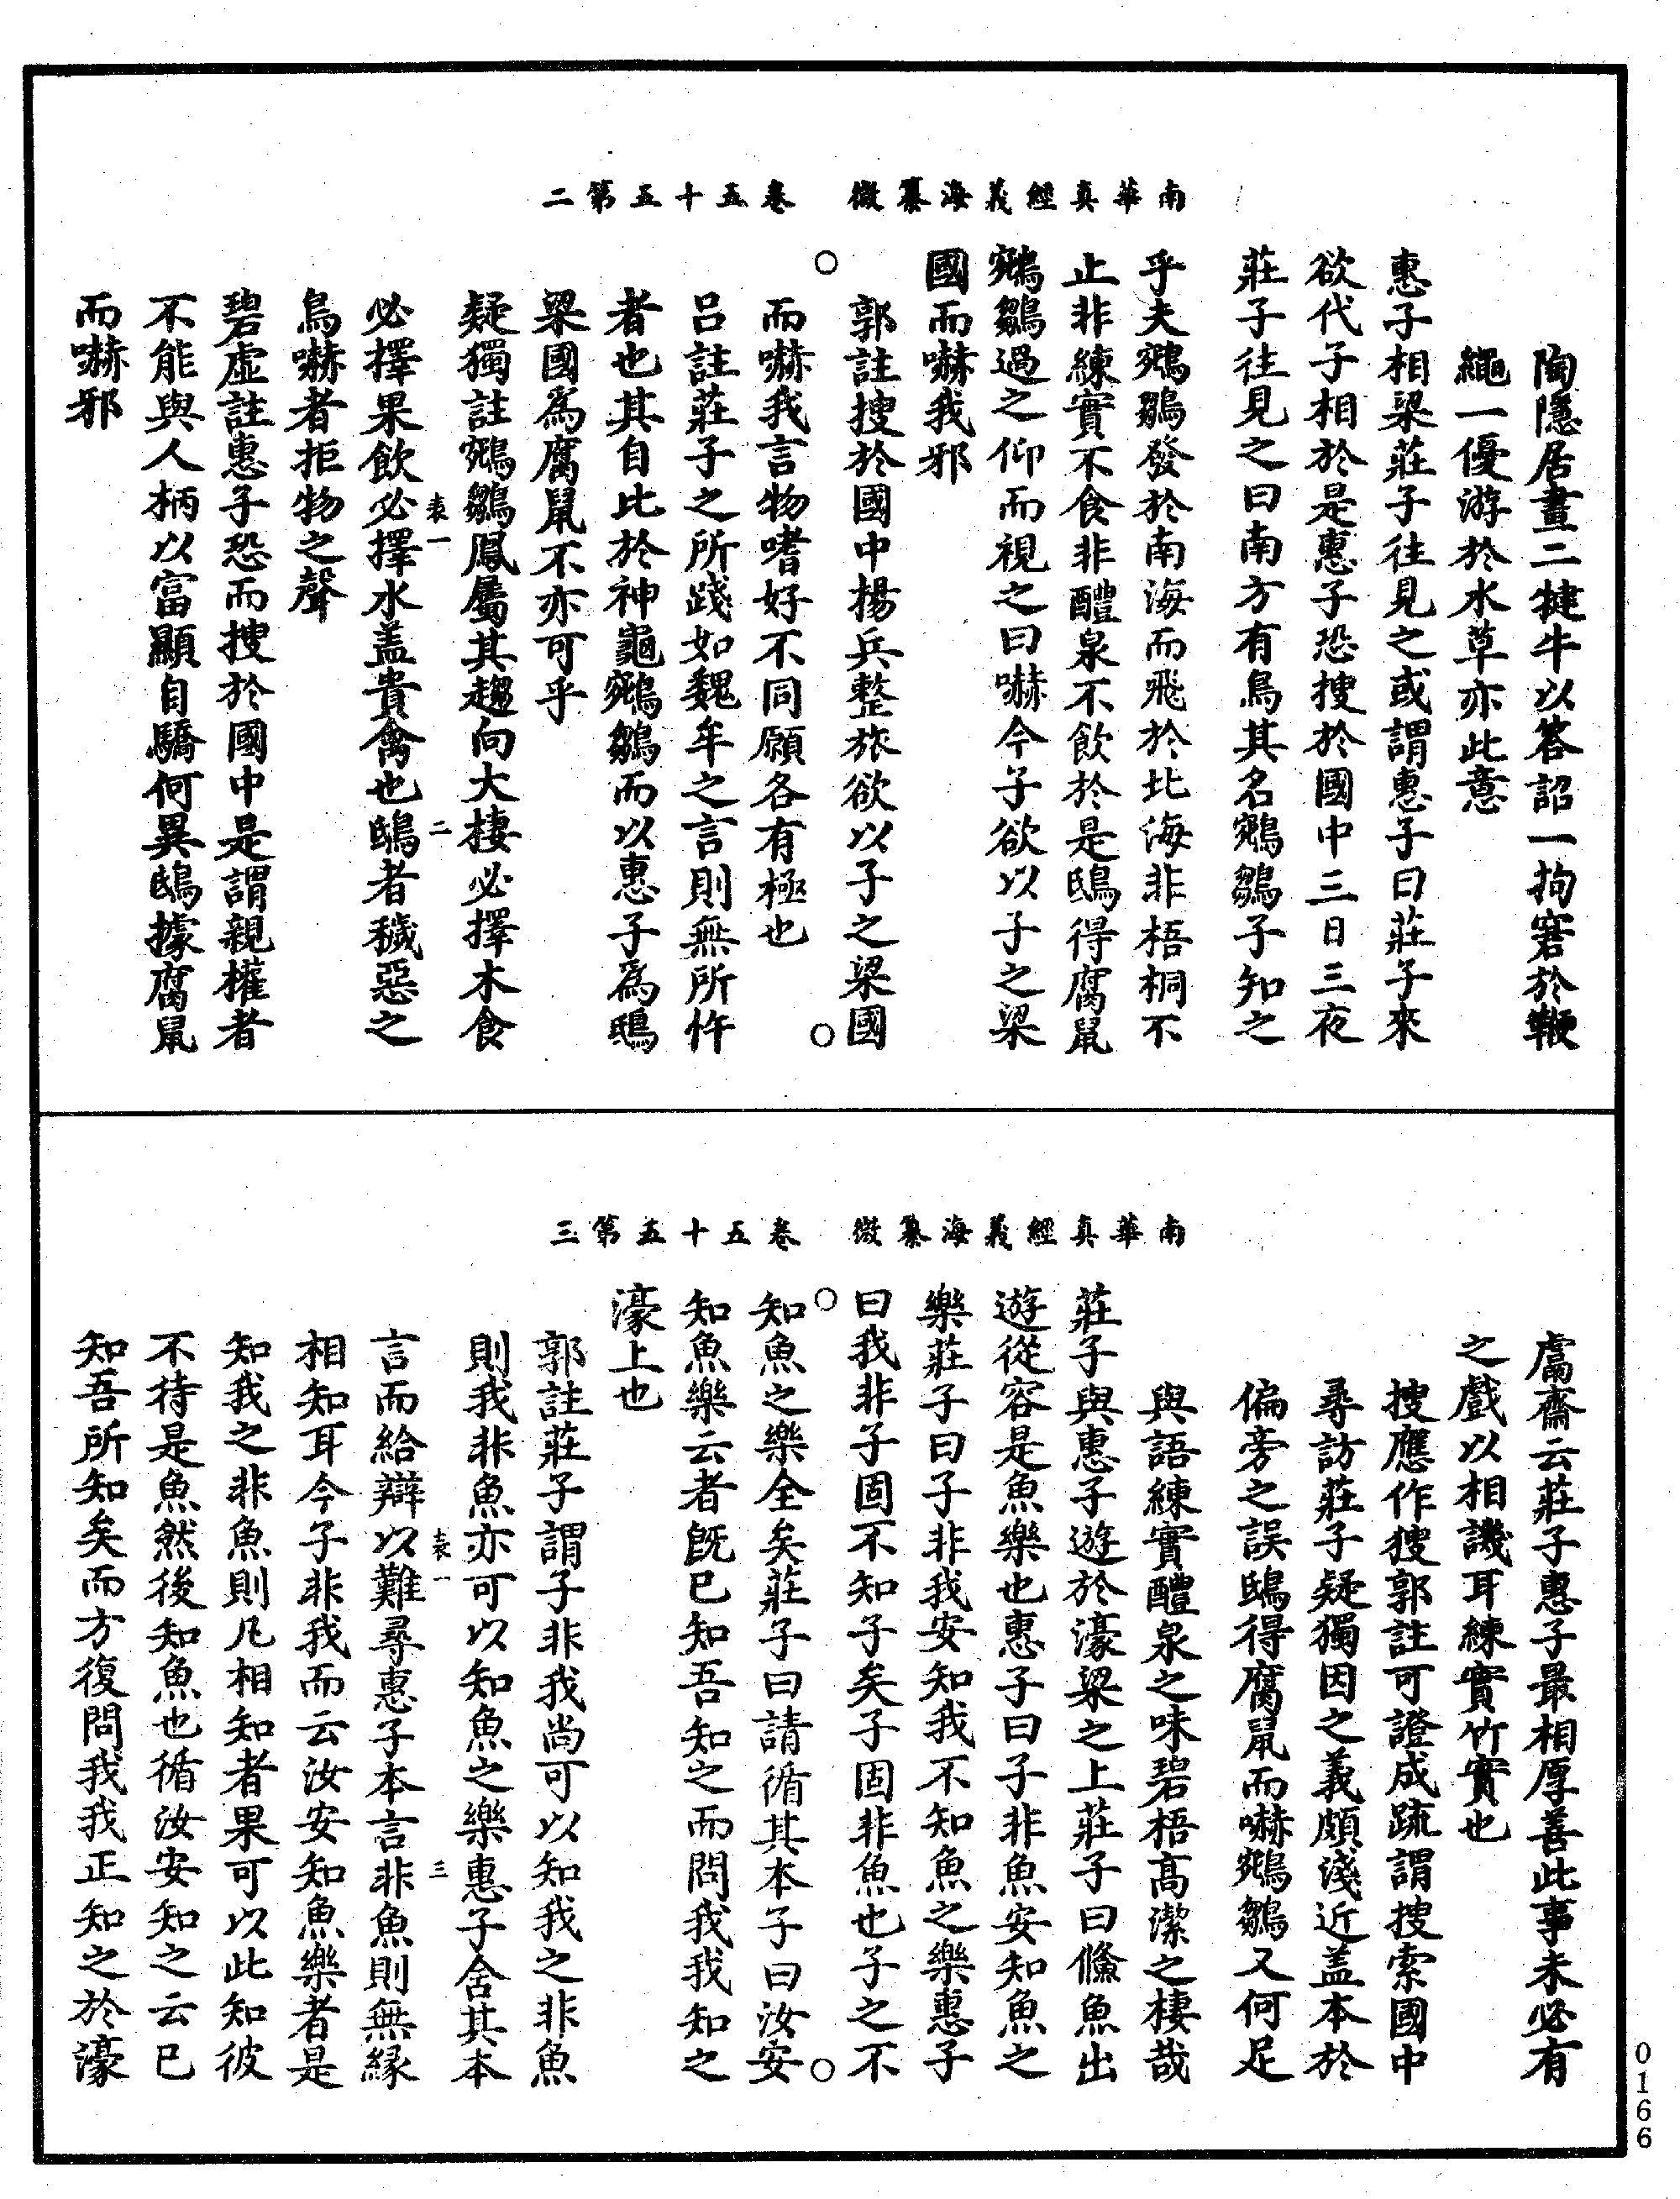 南華真經義海纂微　卷五十五第二
陶隱居畫二犍牛以答詔一拘窘於鞭
繩一優游於水草亦此意
惠子相梁莊子往見之或謂惠子曰莊子來
欲代子相於是惠子恐搜於國中三日三夜
莊子往見之曰南方有鳥其名鵷鶵子知之
乎夫鵷鶵發於南海而飛於北海非梧桐不
止非練實不食非醴泉不飲於是鴟得腐鼠
鵷鶵過之仰而視之曰嚇今子欲以子之梁
國而嚇我邪
郭註搜於國中揚兵整旅欲以子之梁國
而嚇我言物嗜好不同願各有極也
呂註莊子之所踐如魏牟之言則無所忤
者也其自比於神龜鵷鶵而以惠子為鴟
梁國為腐鼠不亦可乎
疑獨註鵷鶵鳳屬其趨向大棲必擇木食
必擇果飲必擇水盖貴禽也鴟者穢惡之
鳥嚇者拒物之聲
碧虛註惠子恐而搜於國中是謂親權者
不能與人柄以富顯自驕何異鴟據腐鼠
而嚇邪
袁一　二
南華真經義海纂微　卷五十五第三
鬳齋云莊子惠子最相厚善此事未必有
之戲以相譏耳練實竹實也
搜應作獀郭註可證成疏謂搜索國中
尋訪莊子疑獨因之義頗淺近盖本於
偏旁之誤鴟得腐鼠而嚇鵷鶵又何足
與語練實醴泉之味碧梧高潔之棲哉
莊子與惠子遊於濠梁之上莊子曰鯈魚出
遊從容是魚樂也惠子曰子非魚安知魚之
樂莊子曰子非我安知我不知魚之樂惠子
曰我非子固不知子矣子固非魚也子之不
知魚之樂全矣莊子曰請循其本子曰汝安
知魚樂云者既已知吾知之而問我我知之
濠上也
郭註莊子謂子非我尚可以知我之非魚
則我非魚亦可以知魚之樂惠子舍其本
言而給辯以難尋惠子本言非魚則無緣
相知耳今子非我而云汝安知魚樂者是
知我之非魚則凡相知者果可以此知彼
不待是魚然後知魚也循汝安知之云已
知吾所知矣而方復問我我正知之於濠
袁一　三
0166